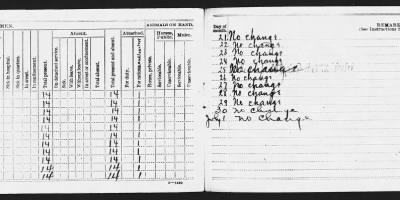 MEN.
ANIMALS ON HAND.
Absent.
Attached.
Horses, Public.
Mules.
Sick in hospital.
Sick in quarters.
In arrest.
In confinement.
Total present.
On detached service.
Sick.
With leave.
Without leave.
In arrest or confinement.
Total absent.
Total present and absent.
For duty.
For rations
Horses, private.
Serviceable.
Unserviceable.
Serviceable.
Unserviceable.
14 14 1
14 14 1
14 14 1
14 14 1
14 14 1
14 14 1
14 14 1
14 14 1
14 14 1
14 14 1
14 14 1
Day of month.
REMARK
(See Instructions
21. No change
22. No change
23 No change
24 No change
25 No change
26 No change
27 No change
28 No change
29 No change
30 No change
July 1 No Change